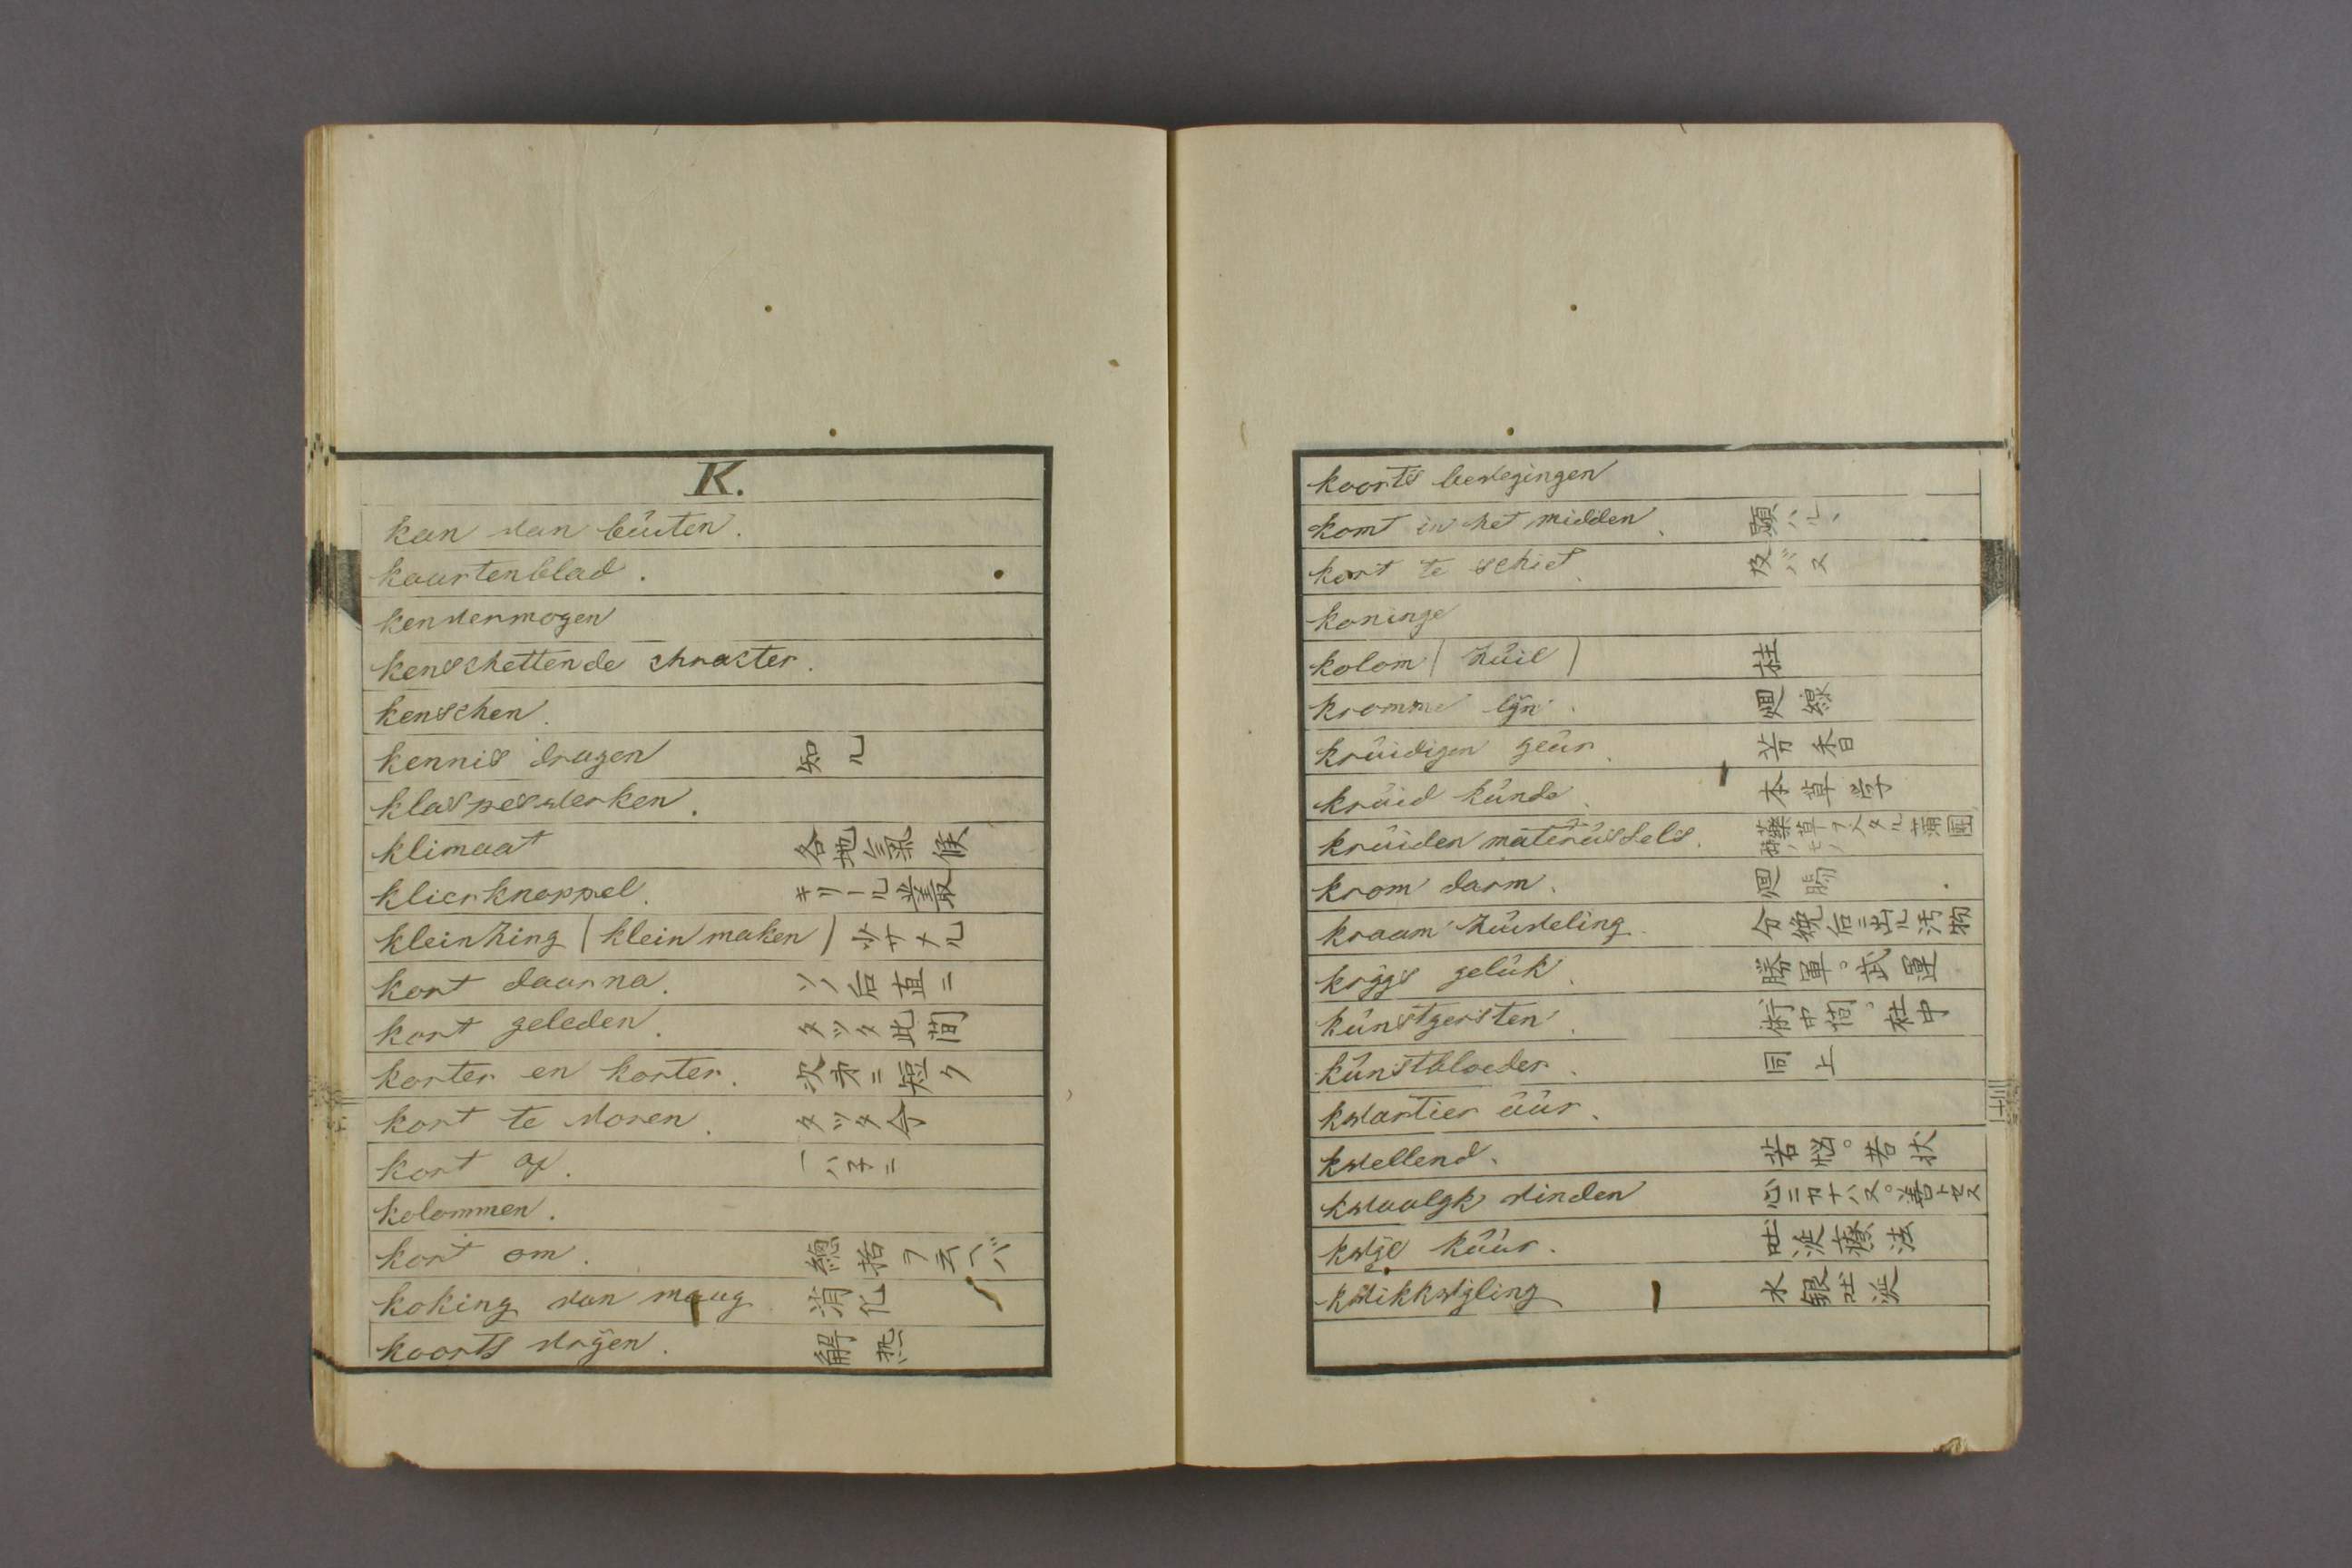 K.
kan van bûiten.
kaartenblad.
kenvermogen
kenschettende chracter.
kenschen.
kennis dragen 知ル
klaspeswerken.
klimaat 各地氣候
klierknoppel. キリール
kleinzing (klein maken) 少サメル
kort daarna. ソノ后直ニ
kort geleden. タッタ此間
korter en korter. 次第ニ短ク
kort te voren. タッタ今
kort op.
kolommen.
kort om. 總括ヲ云ヘバ
koking van maag 消化
koorts vrÿen. 解熱
koorts bewegingen
komt in het midden. 顕ハル
kort te schiet. 及バヌ
koninge
kolom (zûil) 柱
kromme lÿn. 廻線
krûidigen geûr. 芳香
krûid kûnde. 本草学
krûiden 藥草ヲ入タル蒲團
krom darm. 廻腸
kraam zûiveling. 分娩后ニ出ル汚物
krÿgs gelûk. 勝軍。武運
kûnstgersten.
kûnstbloeder. 同上
kwartier ûûr.
kwellend. 苦悩。苦状
kwaalÿk vinden 心ニカナハヌ。善トセス
kwÿl kûûr. 吐涎療法
kwikkwÿling 水銀吐涎
十三